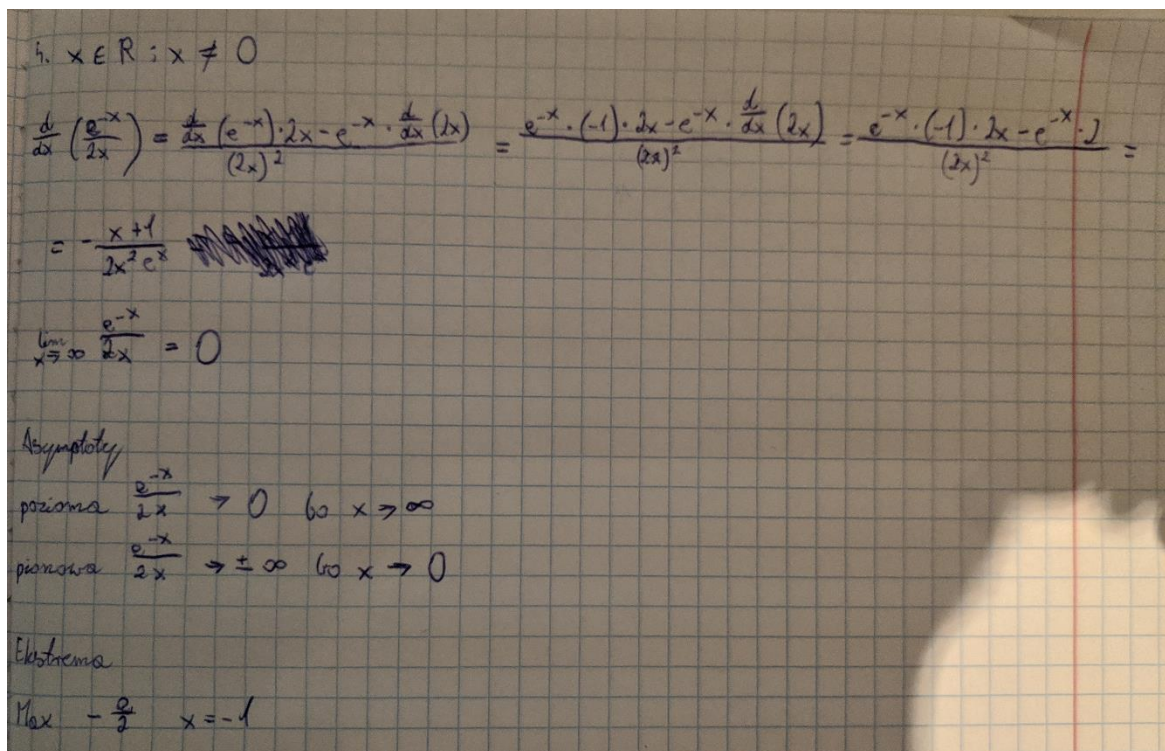 4. x ∈ R ; x ≠ 0
d/dx (e^-x / 2x) = (d/dx (e^-x) · 2x - e^-x · d/dx (2x)) / (2x)^2 = (e^-x · (-1) · 2x - e^-x · d/dx (2x)) / (2x)^2 = (e^-x · (-1) · 2x - e^-x · 2) / (2x)^2 =
= - (x+1) / (2x^2 e^x)
lim x→∞ e^-x / 2x = 0
Asymptoty
pozioma e^-x / 2x → 0 bo x → ∞
pionowa e^-x / 2x → ± ∞ bo x → 0
Ekstrema
Max - e/2 x = -1